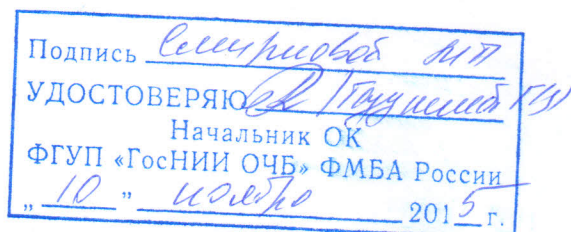 Подпись Смирновой
УДОСТОВЕРЯЮ
Начальник ОК
ФГУП «ГосНИИ ОЧБ» ФМБА России
„ 10 " ноября 2015 г.